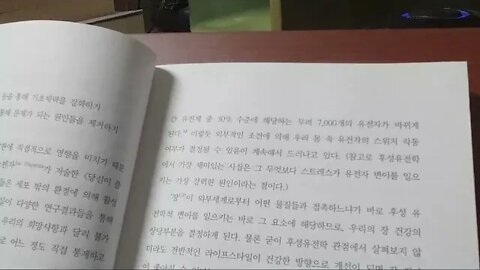 등을 통해 기초체력을 강화하기
통해 문제가 되는 원인들을 제거하기
현에 직접적으로 영향을 미치기 때문
가 저술한 《당신이 플
들은 세포 밖의 환경에 의해 활성
일이 다양한 연구결과들을 통해
우리의 희망사항과 달리 불가
로 어느 정도 직접 통제하고
간 유전체 중 30% 수준에 해당하는 무려 7,000개의 유전자가 바뀌게
된다. 이렇듯 외부적인 조건에 의해 우리 몸 속 유전자의 스위치 작동
여부가 결정될 수 있음이 계속해서 드러나고 있다. (참고로 후성유전학
에서 가장 재미있는 사실은 그 무엇보다 스트레스가 유전자 변이를 일으
키는 가장 강력한 원인이라는 점이다.)
'장'이 외부세계로부터 어떤 물질들과 접촉하느냐가 바로 후성 유
전학적 변이를 일으키는 바로 그 요소에 해당하므로, 우리의 장 건강의
상당부분을 결정하게 된다. 물론 굳이 후성유전학 관점에서 살펴보지 않
더라도 전반적인 라이프스타일이 건강한 방향으로 개선이 되면